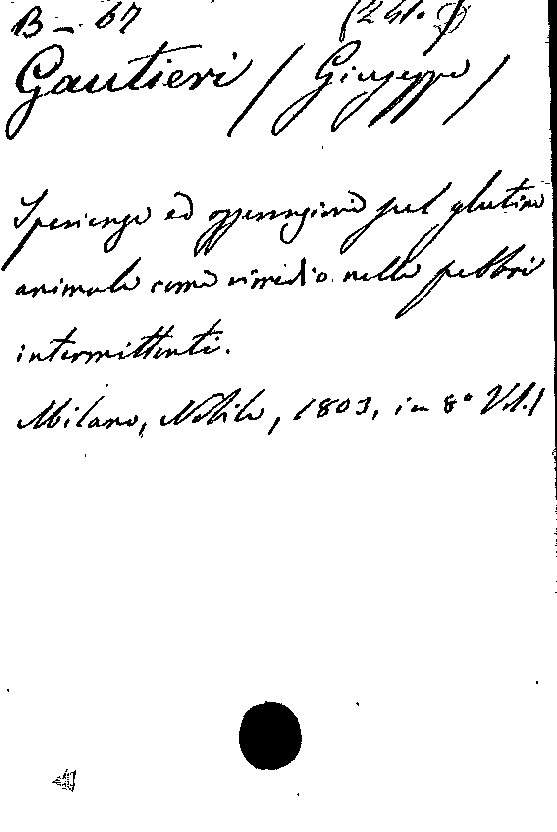 B - 67
Gautieri / Giuseppe /
Sperienze ed osservazioni sul glutine
animale come rimedio nelle febbri
intermittenti.
Milano, Nobile, 1803, in 8° Vol. 1